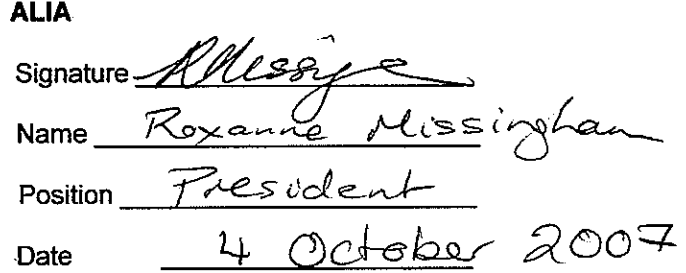 ALIA
Signature RMissingham
Name Roxanne Missingham
Position President
Date 4 October 2007